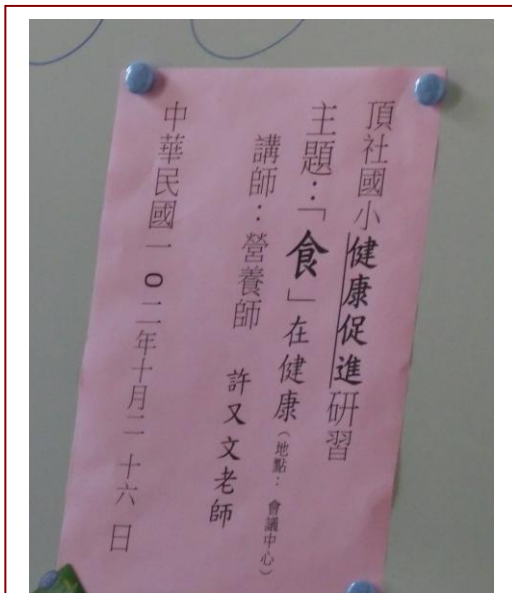 頂社國小健康促進研習
主題：「食」在健康（地點：會議中心）
講師：營養師 許又文老師
中華民國一０二年十月二十六日